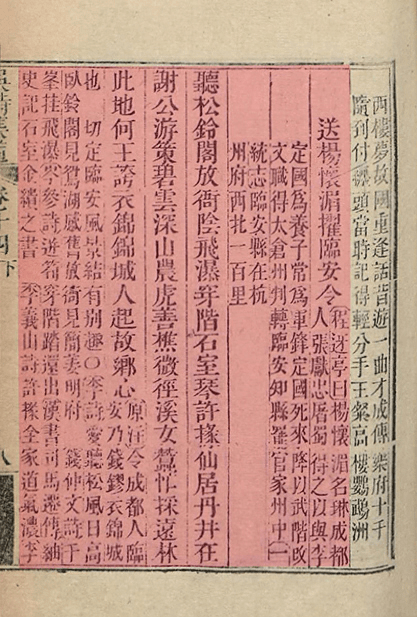 西樓夢故國重逢話昔遊一曲才成傳樂府十千
隨到付纏頭當時記得輕分手王粲高樓鸚鵡洲
送楊懷湄擢臨安令(程迓亭曰楊懷湄名琳成都
人張獻忠屠蜀得之以與李
定國為養子常為軍鋒定國死來降以武階改
文職得太倉州判轉臨安知縣罷官家州中(一
統志臨安縣在杭
州府西北一百里
聽松鈴閣放衙陰飛瀑穿階石室琴許掾仙居丹井在
謝公游策碧雲深山農虎善樵微徑溪女蠶忙採遠林
此地何王誇衣錦錦城人起故鄉心原注令成都人臨
安乃錢鏐衣錦城
也 切定臨安風景結有别趣○李詩愛聽松風且高
臥鈴閣見鴛湖感舊放衙見簡姜明府 錢仲文詩千
峯挂飛瀑岑參詩遊筍穿階踏還出漢書司馬遷傳紬
史記石室金縢之書 李義山詩許掾全家道氣濃李
吳詩集覽 卷十四下 八